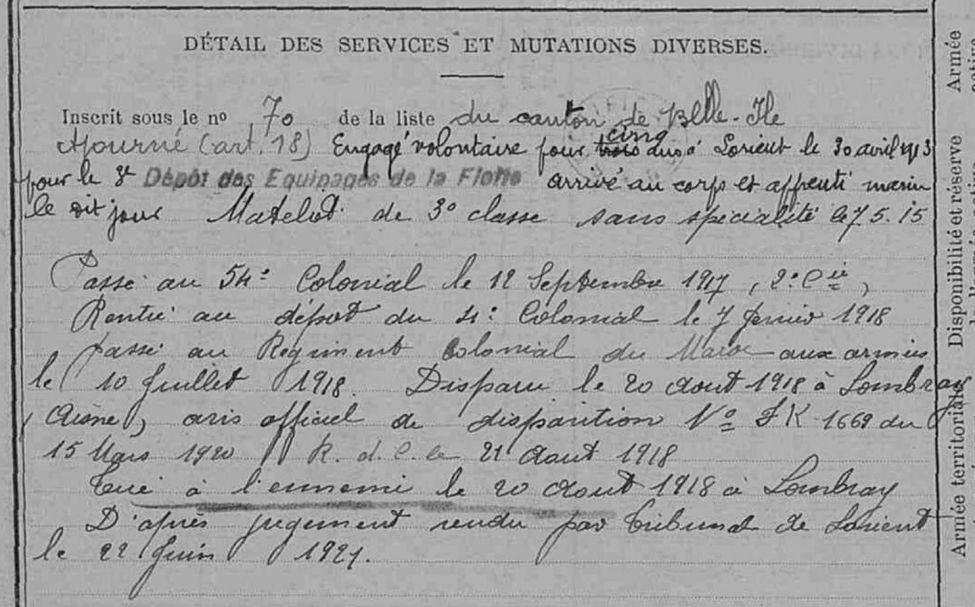 DÉTAIL DES SERVICES ET MUTATIONS DIVERSES.
Inscrit sous le no 70 de la liste du canton de Belle-Ile
Ajourné (art. 18) Engagé volontaire pour trois cinq ans à Lorient le 30 avril 1913
pour le 3e Dépôt des Equipages de la Flotte arrivé au corps et apprenti marin
le dit jour Matelot de 3e classe sans spécialité le 7.5.15
Passé au 54e Colonial le 12 Septembre 1917, 2e Cie,
Rentré au dépôt du 4e Colonial le 7 février 1918
passé au Régiment Colonial du Maroc aux armées
le 10 Juillet 1918. Disparu le 20 Aout 1918 à Lombray
(Aisne), avis officiel de disparition No FK 1669 du
15 Mars 1920 R.d.C. le 21 Aout 1918
Tué à l'ennemi le 20 Aout 1918 à Lombray
D'après jugement rendu par Tribunal de Lorient
le 22 Juin 1921.
Armée
active
Disponibilité et réserve
Armée territoriale